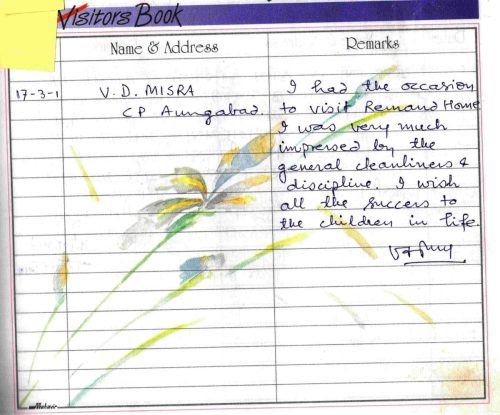 Visitors Book
Name & Address
Remarks
17-3-1
V. D. MISRA
CP Aurngabad.
I had the occasion
to visit Remand Home
I was very much
impressed by the
general cleanliness &
discipline. I wish
all the success to
the children in life.